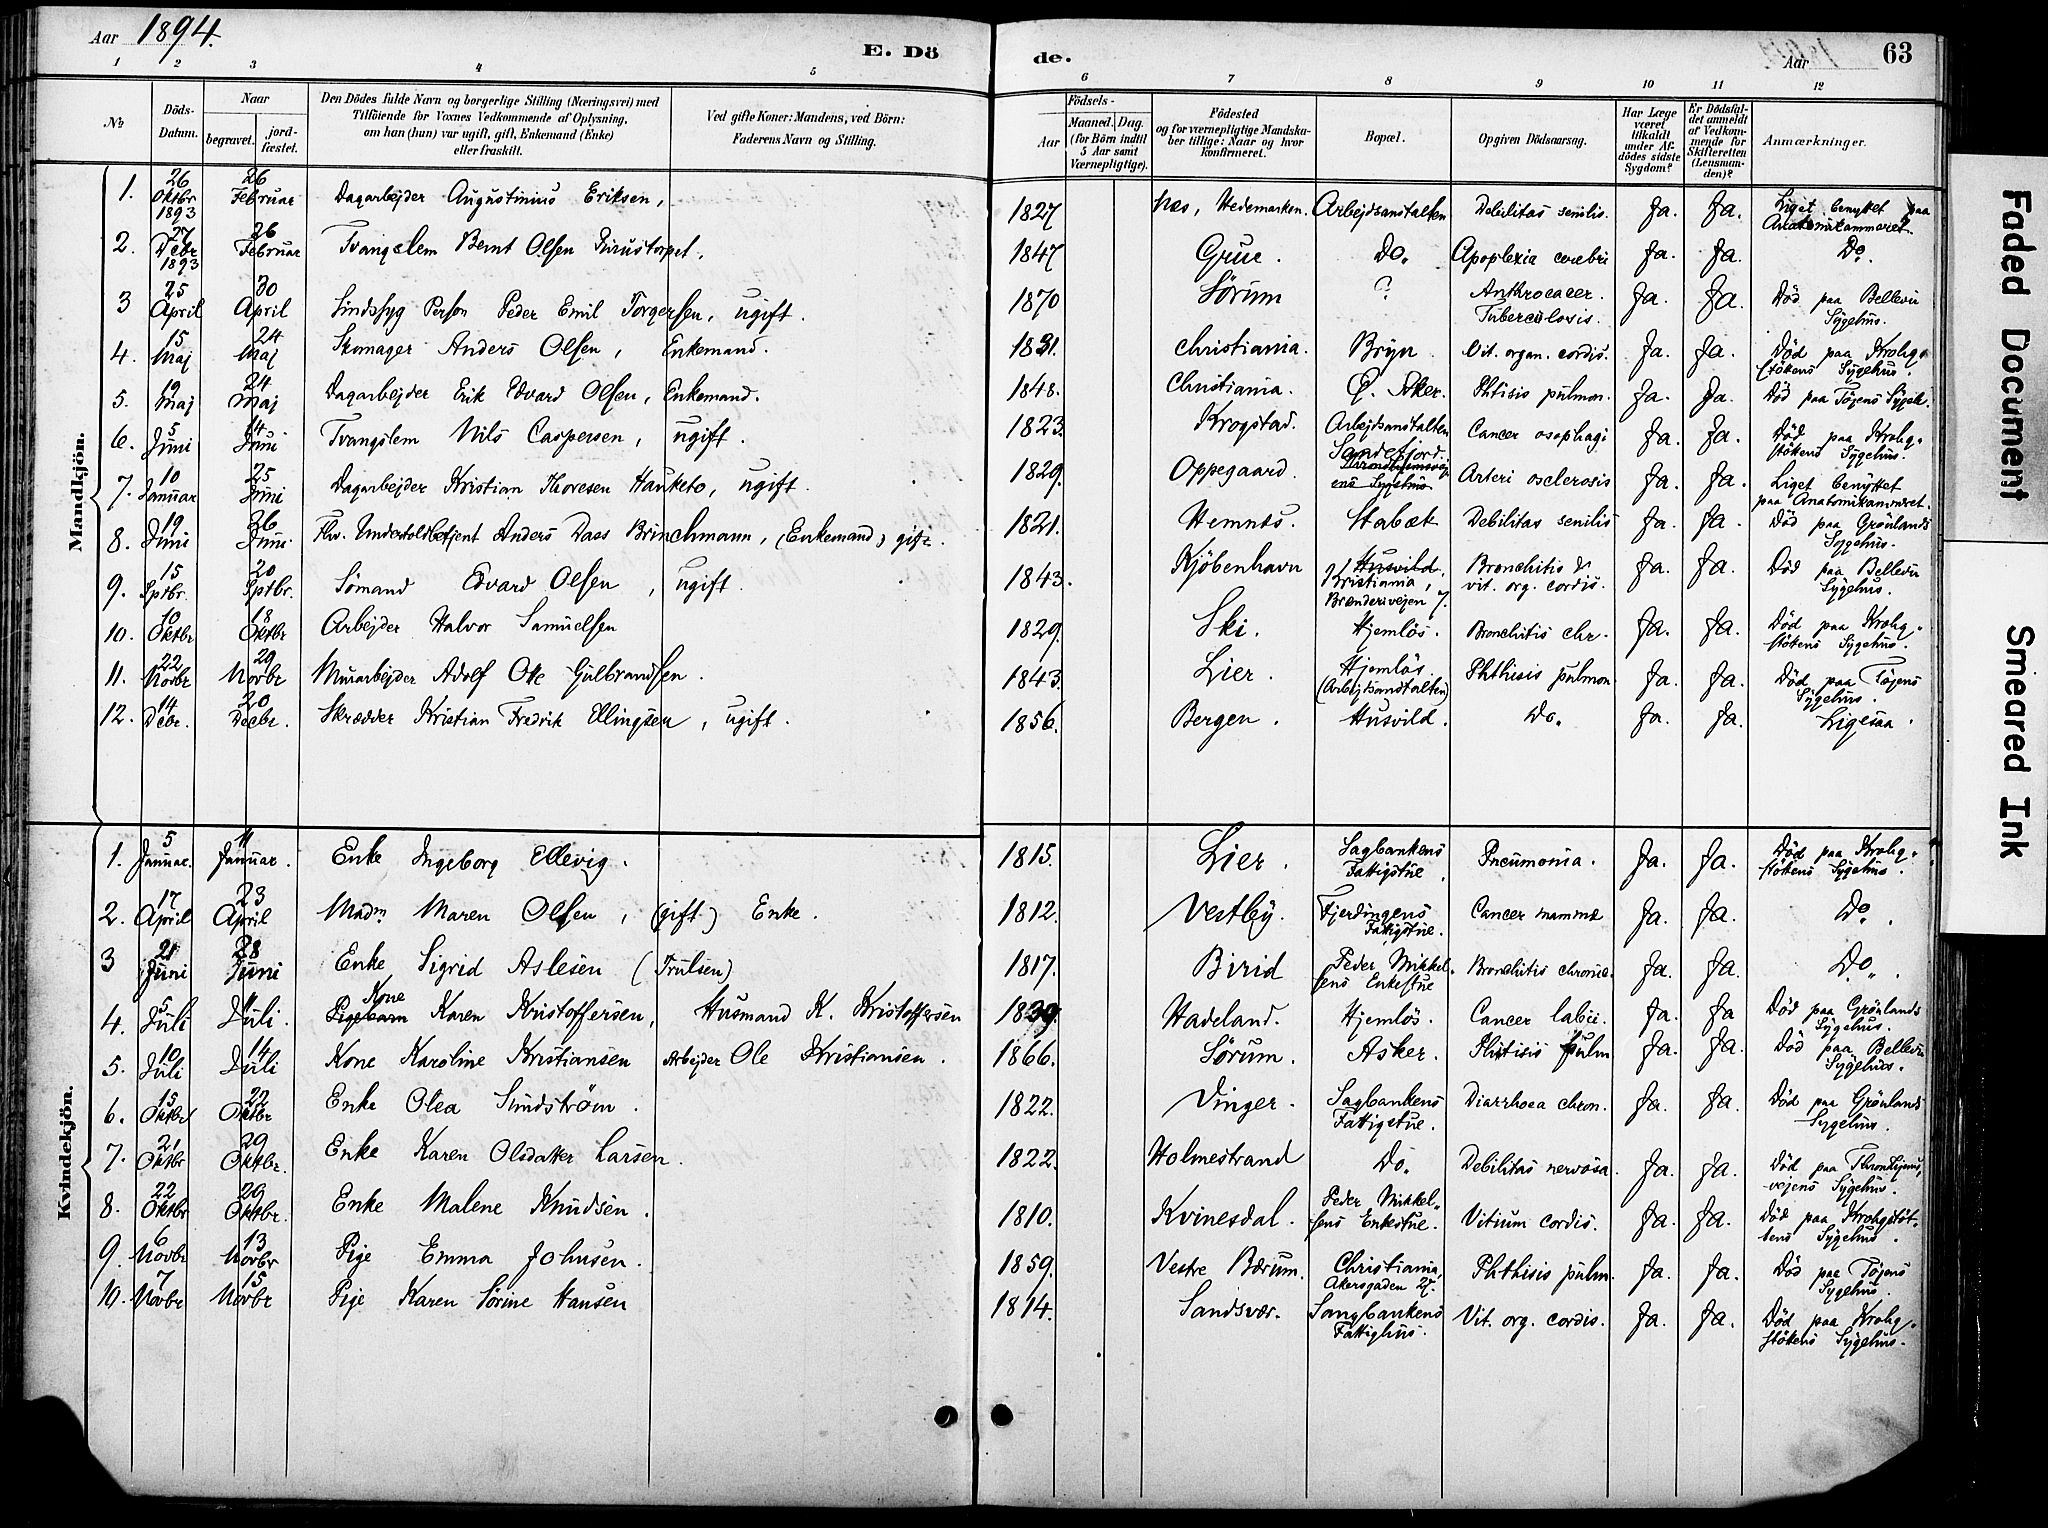 Aar 1894. E. Dö de. Aar 63
1 2 3 4 5 6 7 8 9 10 11 12
No Döds-Datum. Naar begravet. jord-fæstet. Den Dödes fulde Navn og borgerlige Stilling (Næringsvei) med Tilföiende for Voxnes Vedkommende af Oplysning, om han (hun) var ugift, gift, Enkemand (Enke) eller fraskilt. Ved gifte Koner: Mandens, ved Börn: Faderens Navn og Stilling. Födsels- Aar Maaned. Dag. (for Börn indtil 5 Aar samt Værnepligtige). Födested og for værnepligtige Mandskaber tillige: Naar og hvor Konfirmeret. Bopæl. Opgiven Dödsaarsag. Har Læge været tilkaldt under Afdödes sidste Sygdom? Er Dödsfaldet anmeldt af Vedkommende for Skifteretten (Lensmanden)? Anmærkninger.
Mandkjön.
1. 26 Oktbr 1893 26 Februar Dagarbejder Augustinius Eriksen, 1827 Næs, Hedemarken. Arbejdsanstalten Debilitas senilis. Ja. Ja. Liget benyttet paa Anatomikammeret.
2. 27 Debr 1893 26 Februar Tvangslem Bernt Olsen 1847 Grue. Do. Apoplexia cerebri Ja. Ja. Do.
3 25 April 30 April Sindssyg Person Peder Emil Torgersen, ugift. 1870 Sørum ? Anthrocacer. Tuberculosis. Ja. Ja. Död paa Bellevu Sygehus.
4. 15 Maj 24 Maj Skomager Anders Olsen, Enkemand. 1831. Christiania. Bryn Vit. organ. cordis. Ja. Ja. Död paa Krohgstökens Sygehus.
5. 19 Maj 24 Maj Dagarbejder Erik Edvard Olsen, Enkemand. 1848. Christiania. Ö. Aker. Phtisis pulmon. Ja. Ja. Död paa Töjens Sygeh.
6. 5 Juni 14 Juni Tvangslem Nils Caspersen, ugift. 1823. Krogstad. Arbejdsanstalten Cancer osophagi Ja. Ja. Död paa Krohgstökens Sygehus.
7. 10 Januar 25 Juni Dagarbejder Kristian Thoresen Hauketo, ugift. 1829. Oppegaard. Sandefjord. Trondhjemsvejens Sygehus Arteri osclerosis Ja. Ja. Liget benyttet paa Anatomikammeret.
8. 19 Juni 26 Juni Fhv. Undertoldbetjent Anders Daas Brinchmann, (Enkemand) gift. 1821. Hemnes. Stabæk Debilitas senilis Ja. Ja. Död paa Grönlands Sygehus.
9. 15 Sptbr. 20 Sptbr. Sömand Edvard Olsen, ugift. 1843. Kjöbenhavn Husvild. Kristiania, Brænderivejen 7. Bronchitis & vit. org. cordis. Ja. Ja. Död paa Bellevu Sygehus.
10. 10 Oktbr 18 Oktbr Arbejder Halvor Samuelsen 1829. Ski. Hjemlös. Bronchitis chr. Ja. Ja. Död paa Krohgstökens Sygehus.
11. 22 Novbr 29 Novbr Murarbejder Adolf Ole Gulbrandsen. 1843. Lier. Hjemlös. (Arbejdsandstalten) Phthisis pulmon Ja. Ja. Död paa Töjens Sygehus.
12. 14 Debr. 20 Decbr. Skrædder Kristian Fredrik Ellingsen, ugift. 1856. Bergen. Husvild. Do. Ja. Ja. Ligesaa.
Kvindekjön.
1. 5 Januar. 11 Januar. Enke Ingeborg Ellevig. 1815. Lier. Sagbankens Fattigstue Pneumonia. Ja. Ja. Död paa Krohgstökens Sygehus.
2. 17 April 23 April Madm Maren Olsen, (gift.) Enke. 1812. Vestby. Fjerdingens Fattigstue. Cancer mammæ Ja. Ja. Do.
3 21 Juni 28 Juni Enke Sigrid Aslesen (Trulsen) 1817. Birid Peder Mikkelsens Enkestue Bronchitis chronic. Ja. Ja. Do.
4. 5 Juli 11 Juli. Pigebarn Kone Karen Kristoffersen, Husmand K. Kristoffersen 1839. Hadeland. Hjemlös. Cancer labii. Ja. Ja. Död paa Grönlands Sygehus.
5. 10 Juli 14 Juli Kone Karoline Kristiansen Arbejder Ole Kristiansen. 1866. Sörum. Asker. Phtisis pulm Ja. Ja. Död paa Bellevu Sygehus.
6. 15 Oktbr 22 Oktbr Enke Olea Sundström. 1822. Vinger. Sagbankens Fattigstue. Diarrhoea chron. Ja. Ja. Död paa Grönland Sygehus.
7. 21 Oktbr 29 Oktbr. Enke Karen Olsdatter Larsen. 1822. Holmestrand Do. Debilitas nervosa. Ja. Ja. Död paa Throndhjemsvejens Sygehus.
8. 22 Oktbr 29 Oktbr. Enke Malene Knudsen. 1810. Kvinesdal. Peder Mikkelsens Enkestue. Vitium cordis. Ja. Ja. Död paa Krohgstötkens Sygehus.
9. 6 Novbr 13 Novbr Pige Emma Johnsen. 1859. Vestre Bærum. Christiania, Akersgaden 27. Phthisis pulm. Ja. Ja. Död paa Töjens Sygehus.
10. 7 Novbr 15 Novbr Pige Karen Sörine Hansen 1814. Sandsvær. Sangbankens Fattighus. Vit. org. cordis. Ja. Ja. Död paa Krohgstökens Sygehus.
Faded Document
Smeared Ink